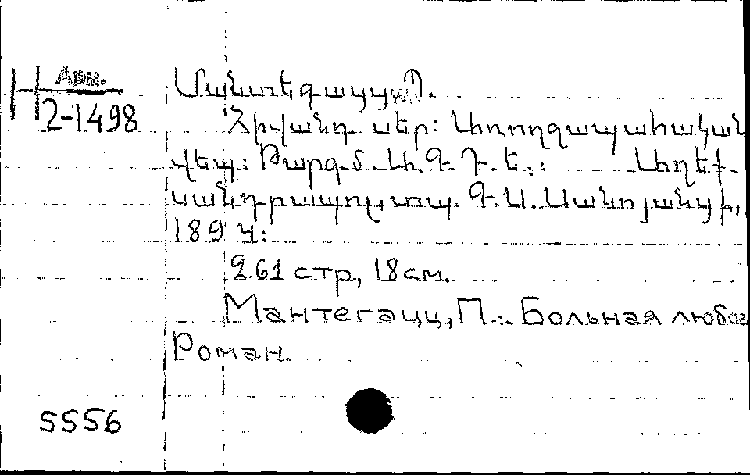 Арм.
H 2-1498
Մանտեգացցա Պ.
Հիվանդ սեր: Առողջապահական
վեպ: Թարգմ. Լ. Գ. Դ. Ե.: Ալեք-
սանդրապոլ, տպ. Գ. Ս. Սանոյանցի,
189 ч:
261 стр, 18 см.
Мантегацц, П.: Больная любов
Роман.
5556